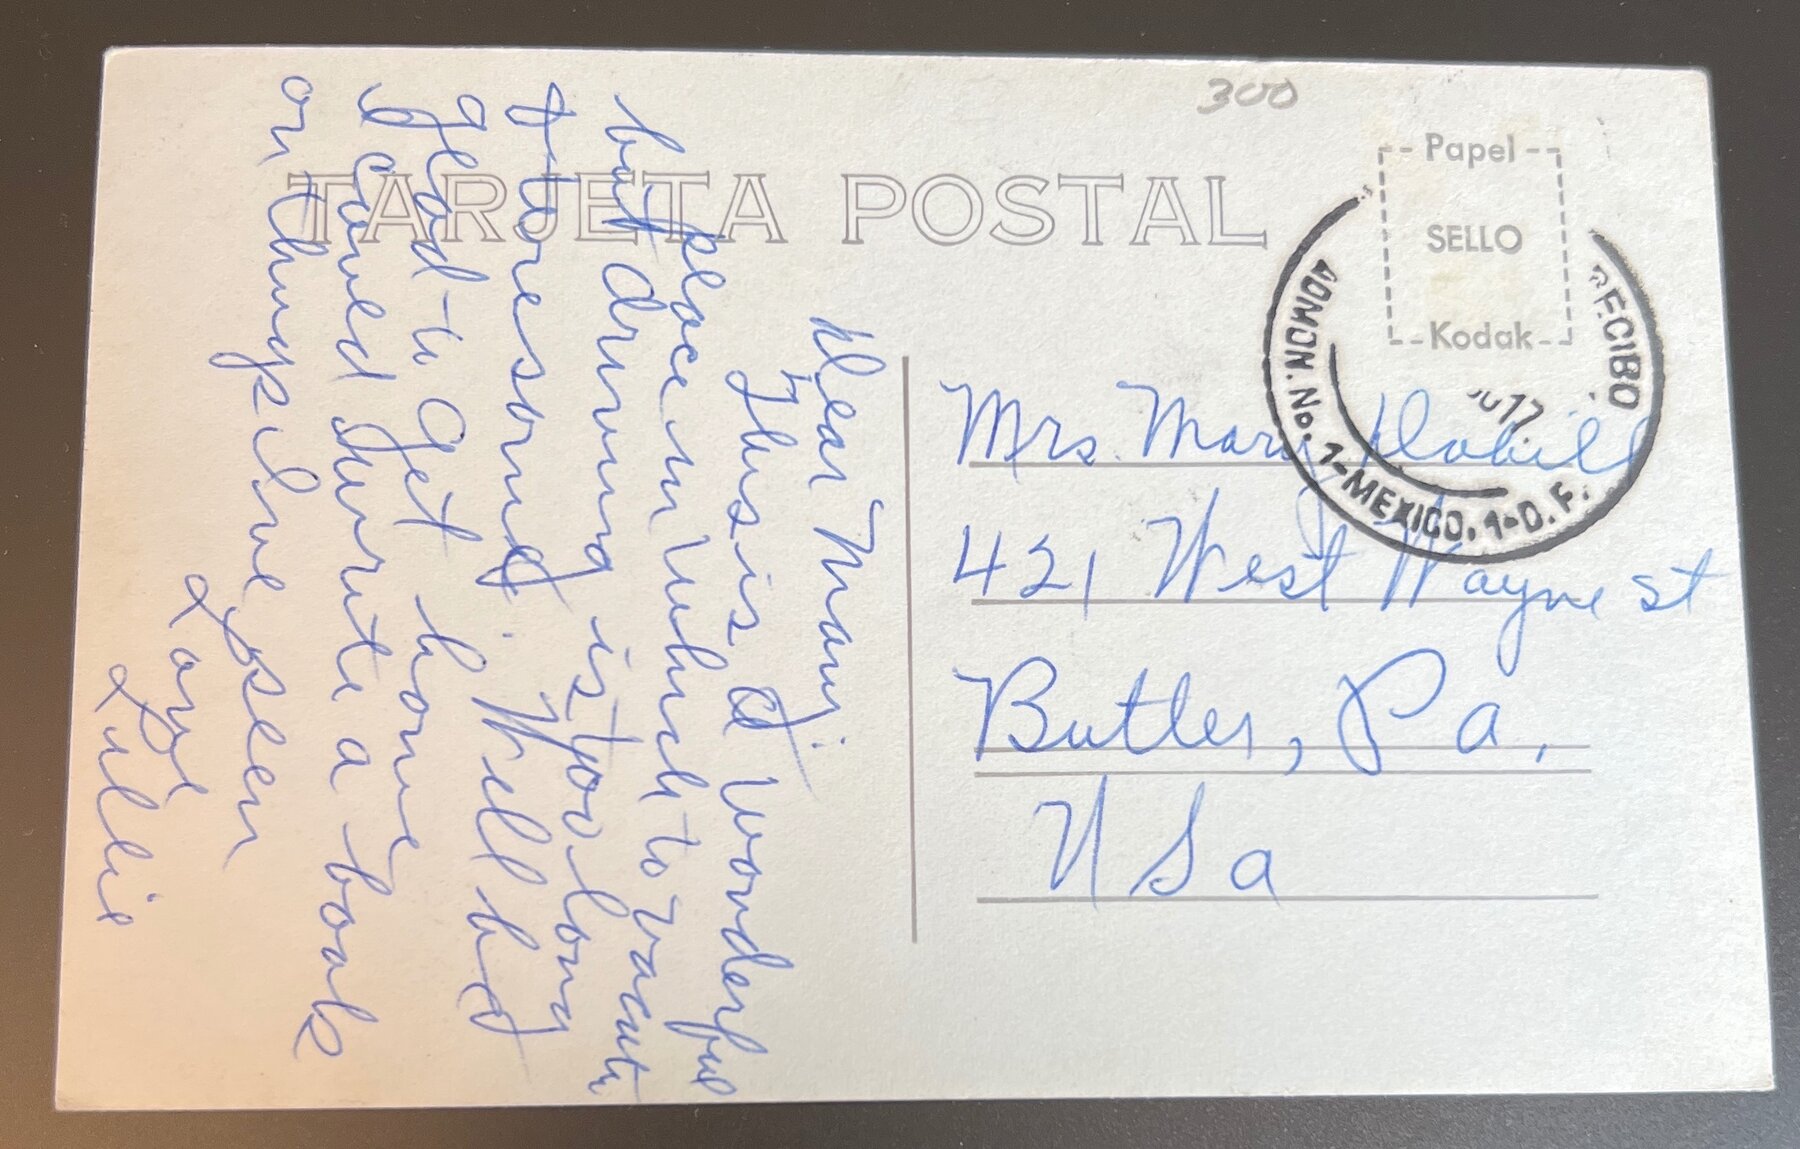 300
TARJETA POSTAL
Papel
SELLO
Kodak
ADMON. No. 1-MEXICO, 1-D.F.
RECIBO
17.
Dear Mary:
This is a wonderful
place in which to vacati
but driving is too long
& tiresome. Will be
glad to get home
I could write a book
on things I've seen
Love
Lillie
Mrs. Mary
421 West Wayne st
Butler, Pa,
USa